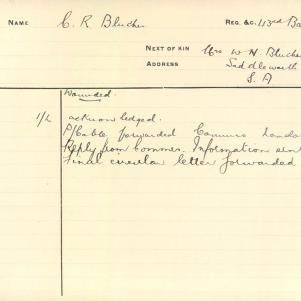 NAME C. R. Blucher REG. &C. 1/3rd Ba
NEXT OF KIN Mrs W. H. Bluche
ADDRESS Saddleworth
S. A
Wounded.
1/2 acknowledged.
P/Cable forwarded Commrs London
Reply from Commrs. Information sent
Final circular letter forwarded